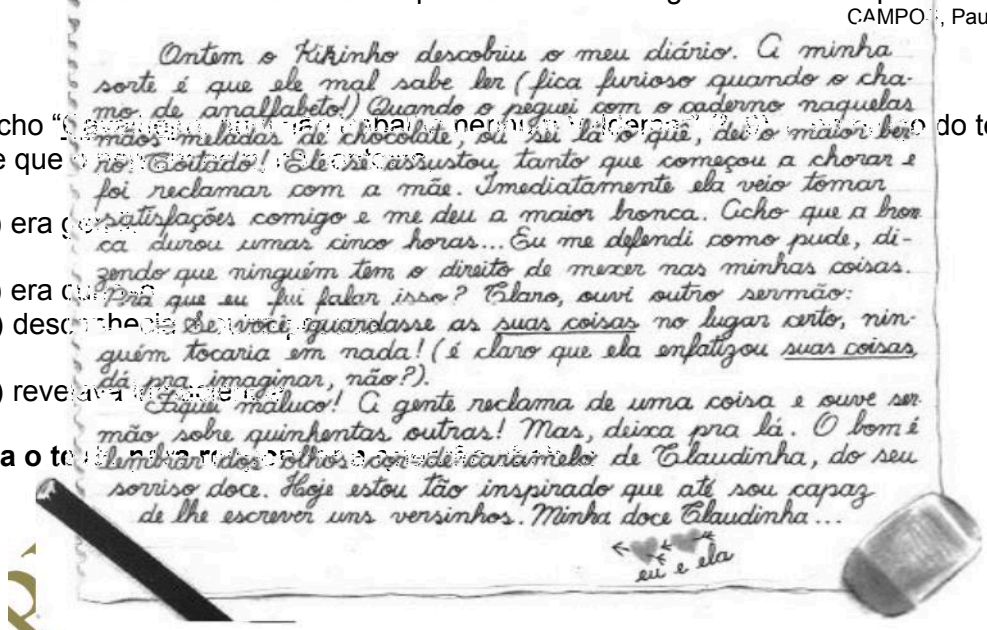 CAMPOS, Pau
Ontem o Kikinho descobriu o meu diário. A minha
sorte é que ele mal sabe ler (fica furioso quando o cha-
mo de analfabeto!) Quando o peguei com o caderno naquelas
cho "
mãos meladas de chocolate, ou sei lá o quê, dei o maior ber
do te
e que
ro. Coitado! Ele se assustou tanto que começou a chorar e
foi reclamar com a mãe. Imediatamente ela veio tomar
) era
satisfações comigo e me deu a maior bronca. Acho que a bron
ca durou umas cinco horas... Eu me defendi como pude, di-
zendo que ninguém tem o direito de mexer nas minhas coisas.
) era
Pra que eu fui falar isso? Claro, ouvi outro sermão:
) desconhecia
Se você guardasse as suas coisas no lugar certo, nin-
guém tocaria em nada! (é claro que ela enfatizou suas coisas,
dá pra imaginar, não?).
) revelava
Fiquei maluco! A gente reclama de uma coisa e ouve ser
mão sobre quinhentas outras! Mas, deixa pra lá. O bom é
a o
lembrar dos olhos cor de caramelo de Claudinha, do seu
sorriso doce. Hoje estou tão inspirado que até sou capaz
de lhe escrever uns versinhos. Minha doce Claudinha...
eu e ela